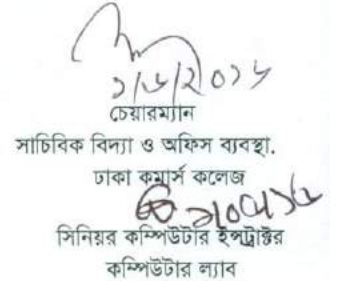 চেয়ারম্যান
সাচিবিক বিদ্যা ও অফিস ব্যবস্থা.
ঢাকা কমার্স কলেজ
সিনিয়র কম্পিউটার ইন্সট্রাক্টর
কম্পিউটার ল্যাব